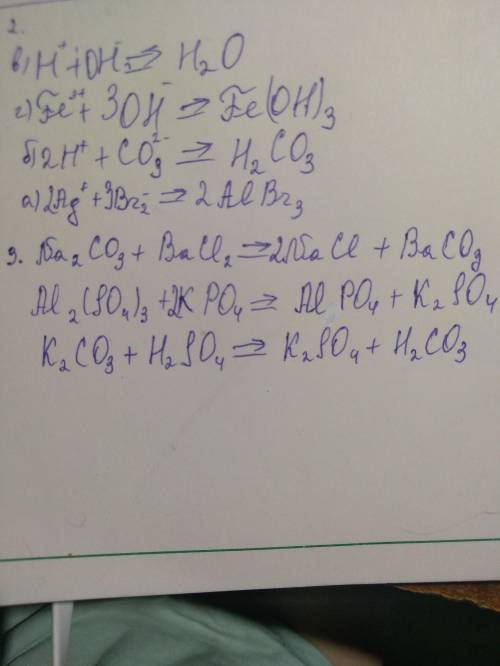 2.
в) H⁺ + OH⁻ ⇌ H₂O
г) Fe³⁺ + 3OH⁻ ⇌ Fe(OH)₃
б) 2H⁺ + CO₃²⁻ ⇌ H₂CO₃
а) 2Ag⁺ + 3Br₂⁻ ⇌ 2AlBr₃
3. Na₂CO₃ + BaCl₂ ⇌ 2NaCl + BaCO₃
Al₂(SO₄)₃ + 2KPO₄ ⇌ AlPO₄ + K₂SO₄
K₂CO₃ + H₂SO₄ ⇌ K₂SO₄ + H₂CO₃